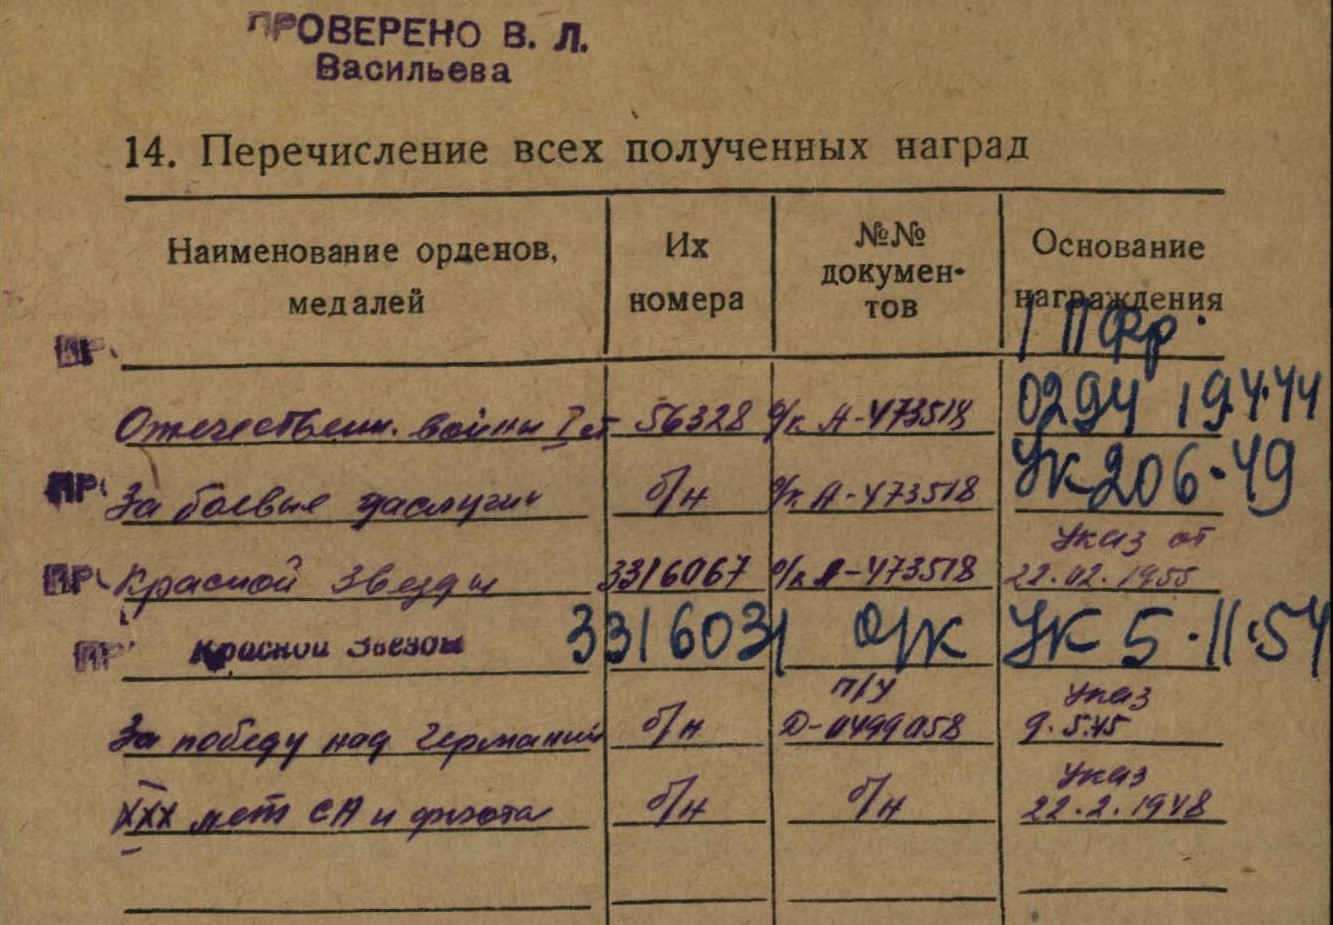 ПРОВЕРЕНО В. Л.
Васильева
14. Перечисление всех полученных наград
Наименование орденов, медалей Их номера №№ докумен- тов Основание награждения
ПР. 1 ПФр.
Отечествен. войны I ст 56328 о/к А-473518 0294 19.4.44
ПР. За боевые заслуги б/н о/к А-473518 УК 206-49
Указ от
ПР. Красной Звезды 3316067 о/к А-473518 22.02.1955
ПР. Красной Звезды 3316031 О/К УК 5.11.54
П/У Указ
За победу над Германией б/н Д-0499058 9.5.45
Указ
XXX лет СА и флота б/н б/н 22.2.1948